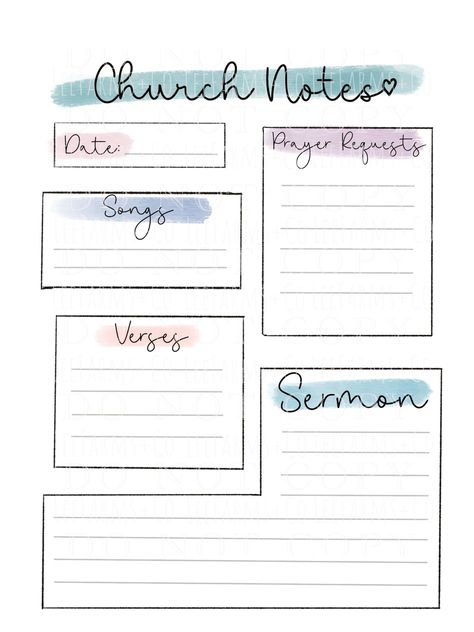 Church Notes
Date:
Prayer Requests
Songs
Verses
Sermon
DO NOT COPY